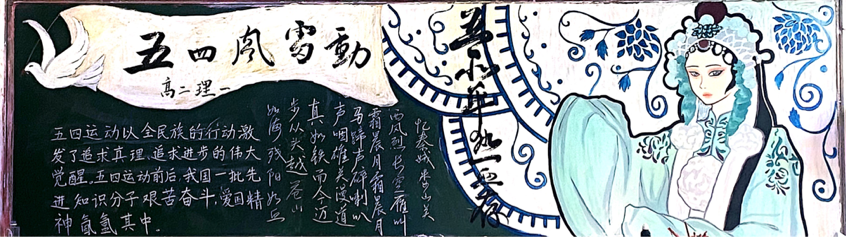 五四風雷動
高二理一
五四运动以全民族的行动激
发了追求真理、追求进步的伟大
觉醒。五四运动前后,我国一批先
进知识分子艰苦奋斗,爱国精
神氤氲其中.
忆秦娥 娄山关
西风烈长空雁叫
霜晨月霜晨月
马蹄声碎喇叭
声咽雄关漫道
真如铁而今迈
步从头越苍山
如海残阳如血